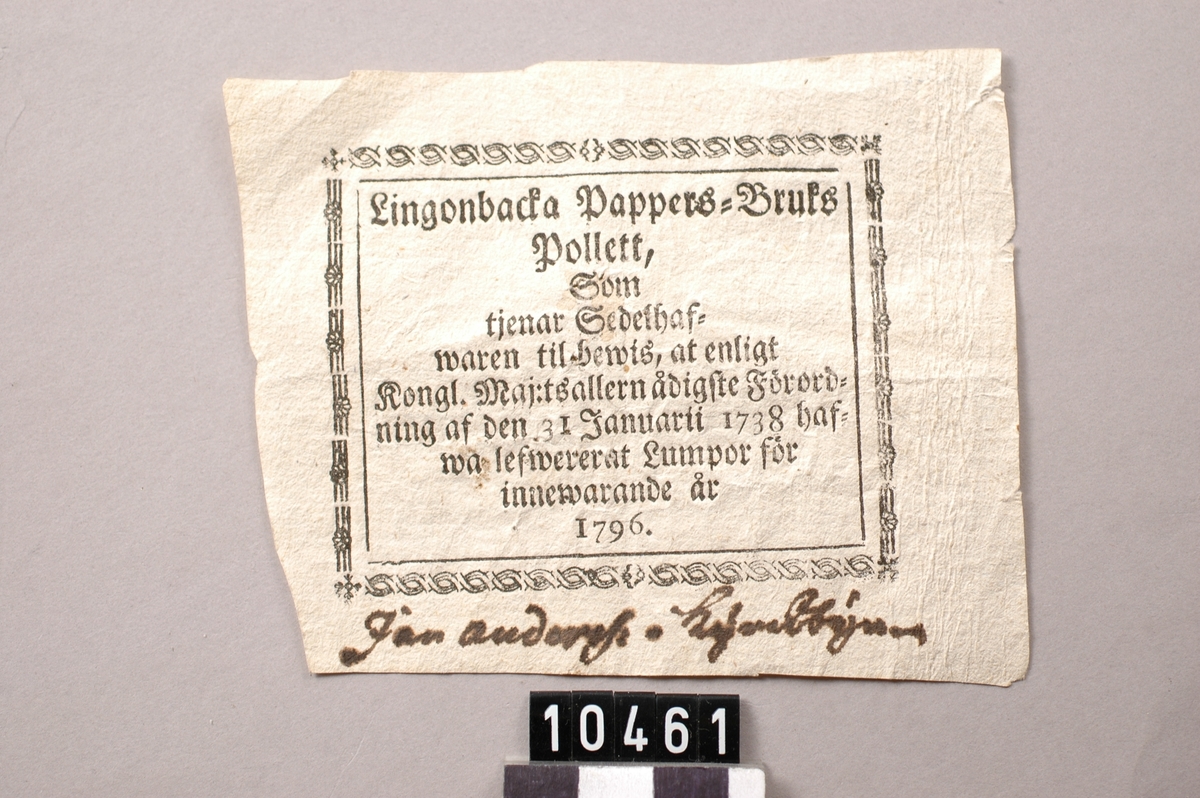 Lingonbacka Pappers=Bruks
Pollett,
Som
tjenar Sedelhaf=
waren til bewis, at enligt
Kongl. Maj:ts allernådigste Förord=
ning af den 31 Januarii 1738 haf=
wa lefwererat Lumpor för
innewarande år
1796.
Jan
10461